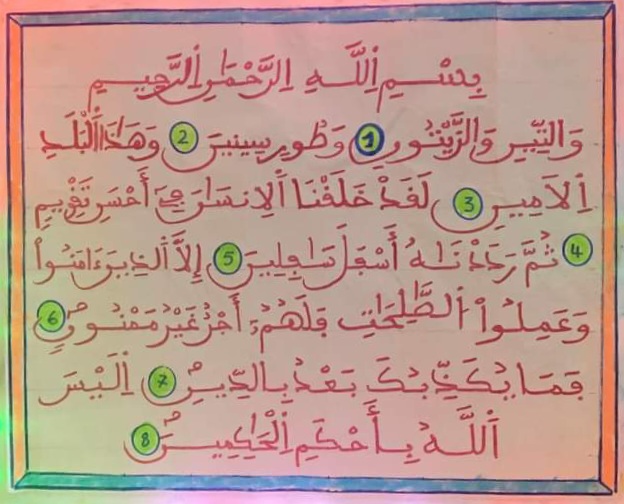 بِسْمِ اِ۬للَّهِ اِ۬لرَّحْمَٰنِ اِ۬لرَّحِيمِ
وَالتِّينِ وَالزَّيْتُونِ 1 وَطُورِ سِينِينَ 2 وَهَٰذَا اَ۬لْبَلَدِ
اِ۬لَامِينِ 3 لَقَدْ خَلَقْنَا اَ۬لِانسَٰنَ فِےٓ أَحْسَنِ تَقْوِيمٍ
4 ثُمَّ رَدَدْنَٰهُ أَسْفَلَ سَٰفِلِينَ 5 إِلَّا اَ۬لذِينَ ءَامَنُواْ
وَعَمِلُواْ اُ۬لصَّٰلِحَٰتِ فَلَهُمُۥٓ أَجْرٌ غَيْرُ مَمْنُونٍ 6
فَمَا يُكَذِّبُكَ بَعْدُ بِالدِّينِ 7 اَلَيْسَ
اَ۬للَّهُ بِأَحْكَمِ اِ۬لْحَٰكِمِينَ 8